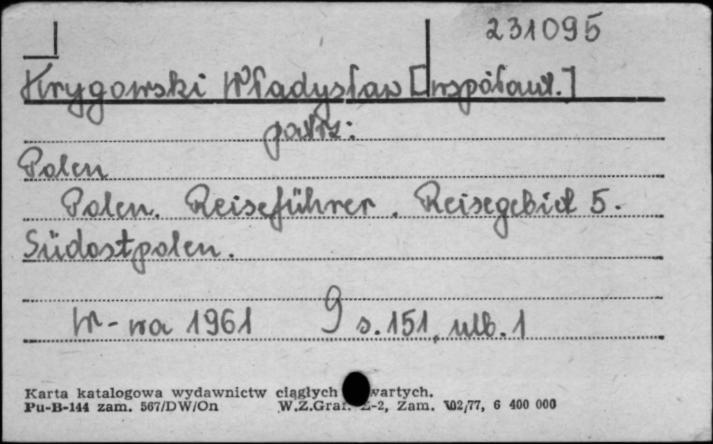 231095
Krygowski Władysław [współaut.]
patrz:
Polen
Polen. Reiseführer. Reisegebiet 5.
Südostpolen.
W-wa 1961 s. 151, nlb. 1
Karta katalogowa wydawnictw ciągłych wartych.
Pu-B-144 zam. 567/DW/On W.Z.Graf. Z-2, Zam. 702/77, 6 400 000